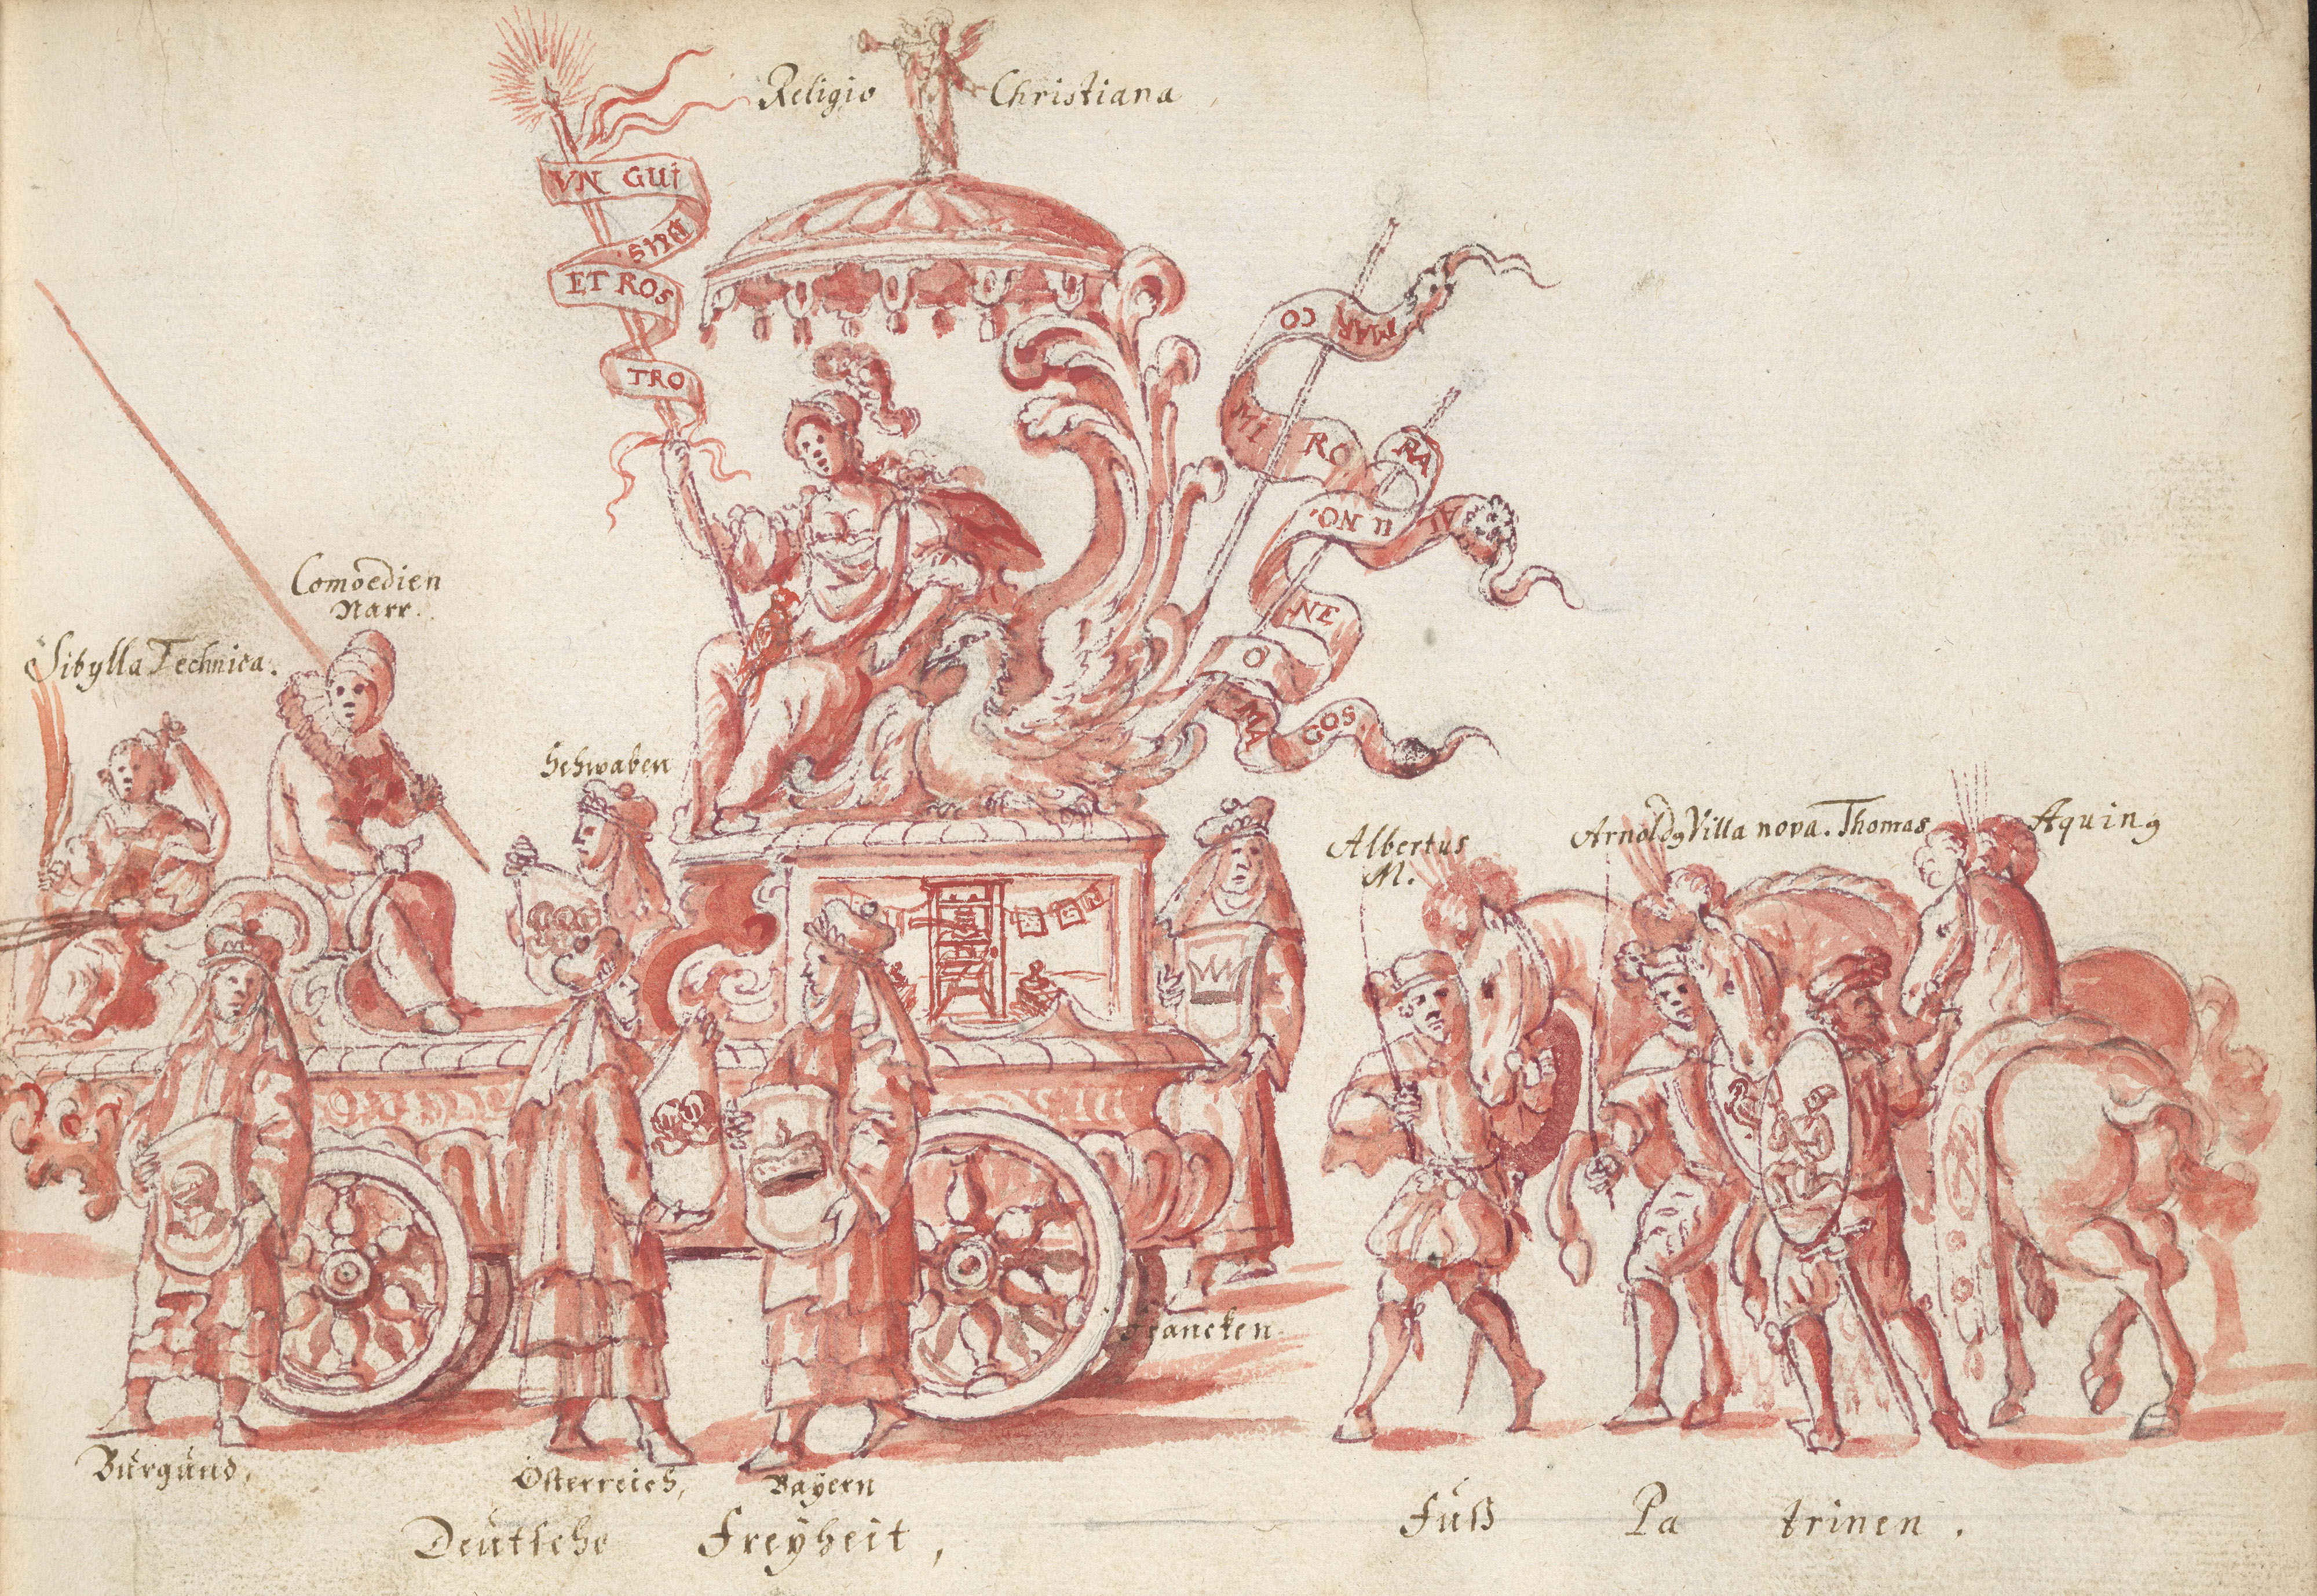 Religio Christiana,
VN GUI
BUS.
ET ROS
TRO
MARCO
MI RO
RA
AL U NO.
NE
O
MA GOS.
Comoedien
Narr.
Sibylla Technica.
Schwaben
Albertus
M.
Arnoldꝰ Villa nova. Thomas Aquinꝰ
Francken
Burgund,
Österreich,
Bayern
Deutsche Freyheit,
Fuß Pa trinen.